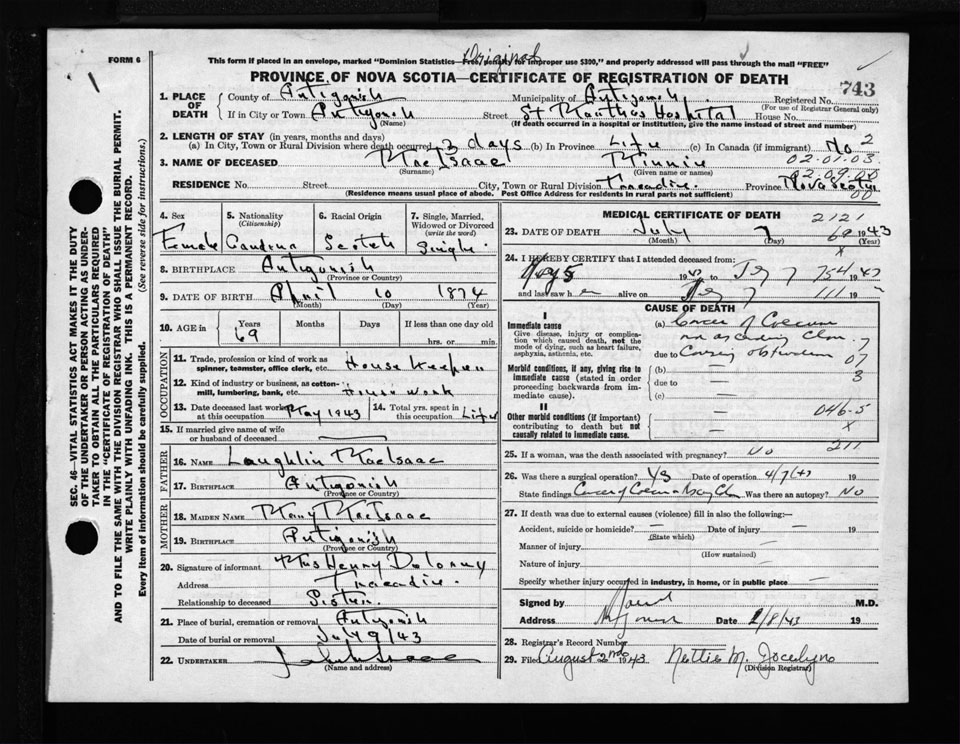 Original
FORM 6
This form if placed in an envelope, marked "Dominion Statistics—Free, (penalty for improper use $300," and properly addressed will pass through the mail "FREE"
PROVINCE OF NOVA SCOTIA—CERTIFICATE OF REGISTRATION OF DEATH
743
1. PLACE OF DEATH
County of Antigonish Municipality of Antigonish Registered No.
(For use of Registrar General only)
If in City or Town Antigonish Street St Marthas Hospital House No.
(Name) (If death occurred in a hospital or institution, give the name instead of street and number)
2. LENGTH OF STAY (in years, months and days)
(a) In City, Town or Rural Division where death occurred 3 days (b) In Province Life (c) In Canada (if immigrant) No 2
02.01.03.
3. NAME OF DECEASED MacIsaac Minnie
(Surname) (Given name or names)
RESIDENCE No. Street City, Town or Rural Division Tracadie. Province Nova Scotia
(Residence means usual place of abode. Post Office Address for residents in rural parts not sufficient)
00
4. Sex
Female
5. Nationality
(Citizenship)
Canadian
6. Racial Origin
Scotch
7. Single, Married, Widowed or Divorced
(write the word)
Single.
8. BIRTHPLACE Antigonish
(Province or Country)
9. DATE OF BIRTH April 10 1874
(Month) (Day) (Year)
10. AGE in
Years Months Days If less than one day old
69 hrs. or min.
OCCUPATION
11. Trade, profession or kind of work as spinner, teamster, office clerk, etc. House Keeper
12. Kind of industry or business, as cotton-mill, lumbering, bank, etc. House work
13. Date deceased last worked at this occupation May 1943
14. Total yrs. spent in this occupation Life
15. If married give name of wife or husband of deceased
FATHER
16. NAME Laughlin MacIsaac
17. BIRTHPLACE Antigonish
(Province or Country)
MOTHER
18. MAIDEN NAME Mary MacIsaac
19. BIRTHPLACE Antigonish
(Province or Country)
20. Signature of informant Mrs Henry Delorey
Address Tracadie.
Relationship to deceased Sister.
21. Place of burial, cremation or removal Antigonish
Date of burial or removal July 9/43
22. UNDERTAKER
(Name and address)
MEDICAL CERTIFICATE OF DEATH
2121
23. DATE OF DEATH July 7 1943
(Month) (Day) (Year)
24. I HEREBY CERTIFY that I attended deceased from:
19 43 to 7 19 43
and last saw h er alive on 7 19
CAUSE OF DEATH
I
Immediate cause
Give disease, injury or complication which caused death, not the mode of dying, such as heart failure, asphyxia, asthenia, etc.
(a) Cancer of Coecum
and ascending Colon
due to Causing obstruction
07
Morbid conditions, if any, giving rise to immediate cause (stated in order proceeding backwards from immediate cause).
(b) —
3
due to —
(c) —
II
Other morbid conditions (important) contributing to death but not causally related to immediate cause.
046-5
x
25. If a woman, was the death associated with pregnancy? No
26. Was there a surgical operation? Date of operation
State findings Was there an autopsy? No
27. If death was due to external causes (violence) fill in also the following:—
Accident, suicide or homicide? — Date of injury — 19
(State which)
Manner of injury —
(How sustained)
Nature of injury —
Specify whether injury occurred in industry, in home, or in public place —
Signed by M.D.
Address Date 1/8/43 19
28. Registrar's Record Number
29. Filed August 2nd 1943 Nettie M. Jocelyn
(Division Registrar)
SEC. 46—VITAL STATISTICS ACT MAKES IT THE DUTY
OF THE UNDERTAKER OR PERSON ACTING AS UNDER-
TAKER TO OBTAIN ALL THE PARTICULARS REQUIRED
IN THE "CERTIFICATE OF REGISTRATION OF DEATH"
AND TO FILE THE SAME WITH THE DIVISION REGISTRAR WHO SHALL ISSUE THE BURIAL PERMIT.
WRITE PLAINLY WITH UNFADING INK. THIS IS A PERMANENT RECORD.
Every item of information should be carefully supplied. (See reverse side for instructions.)